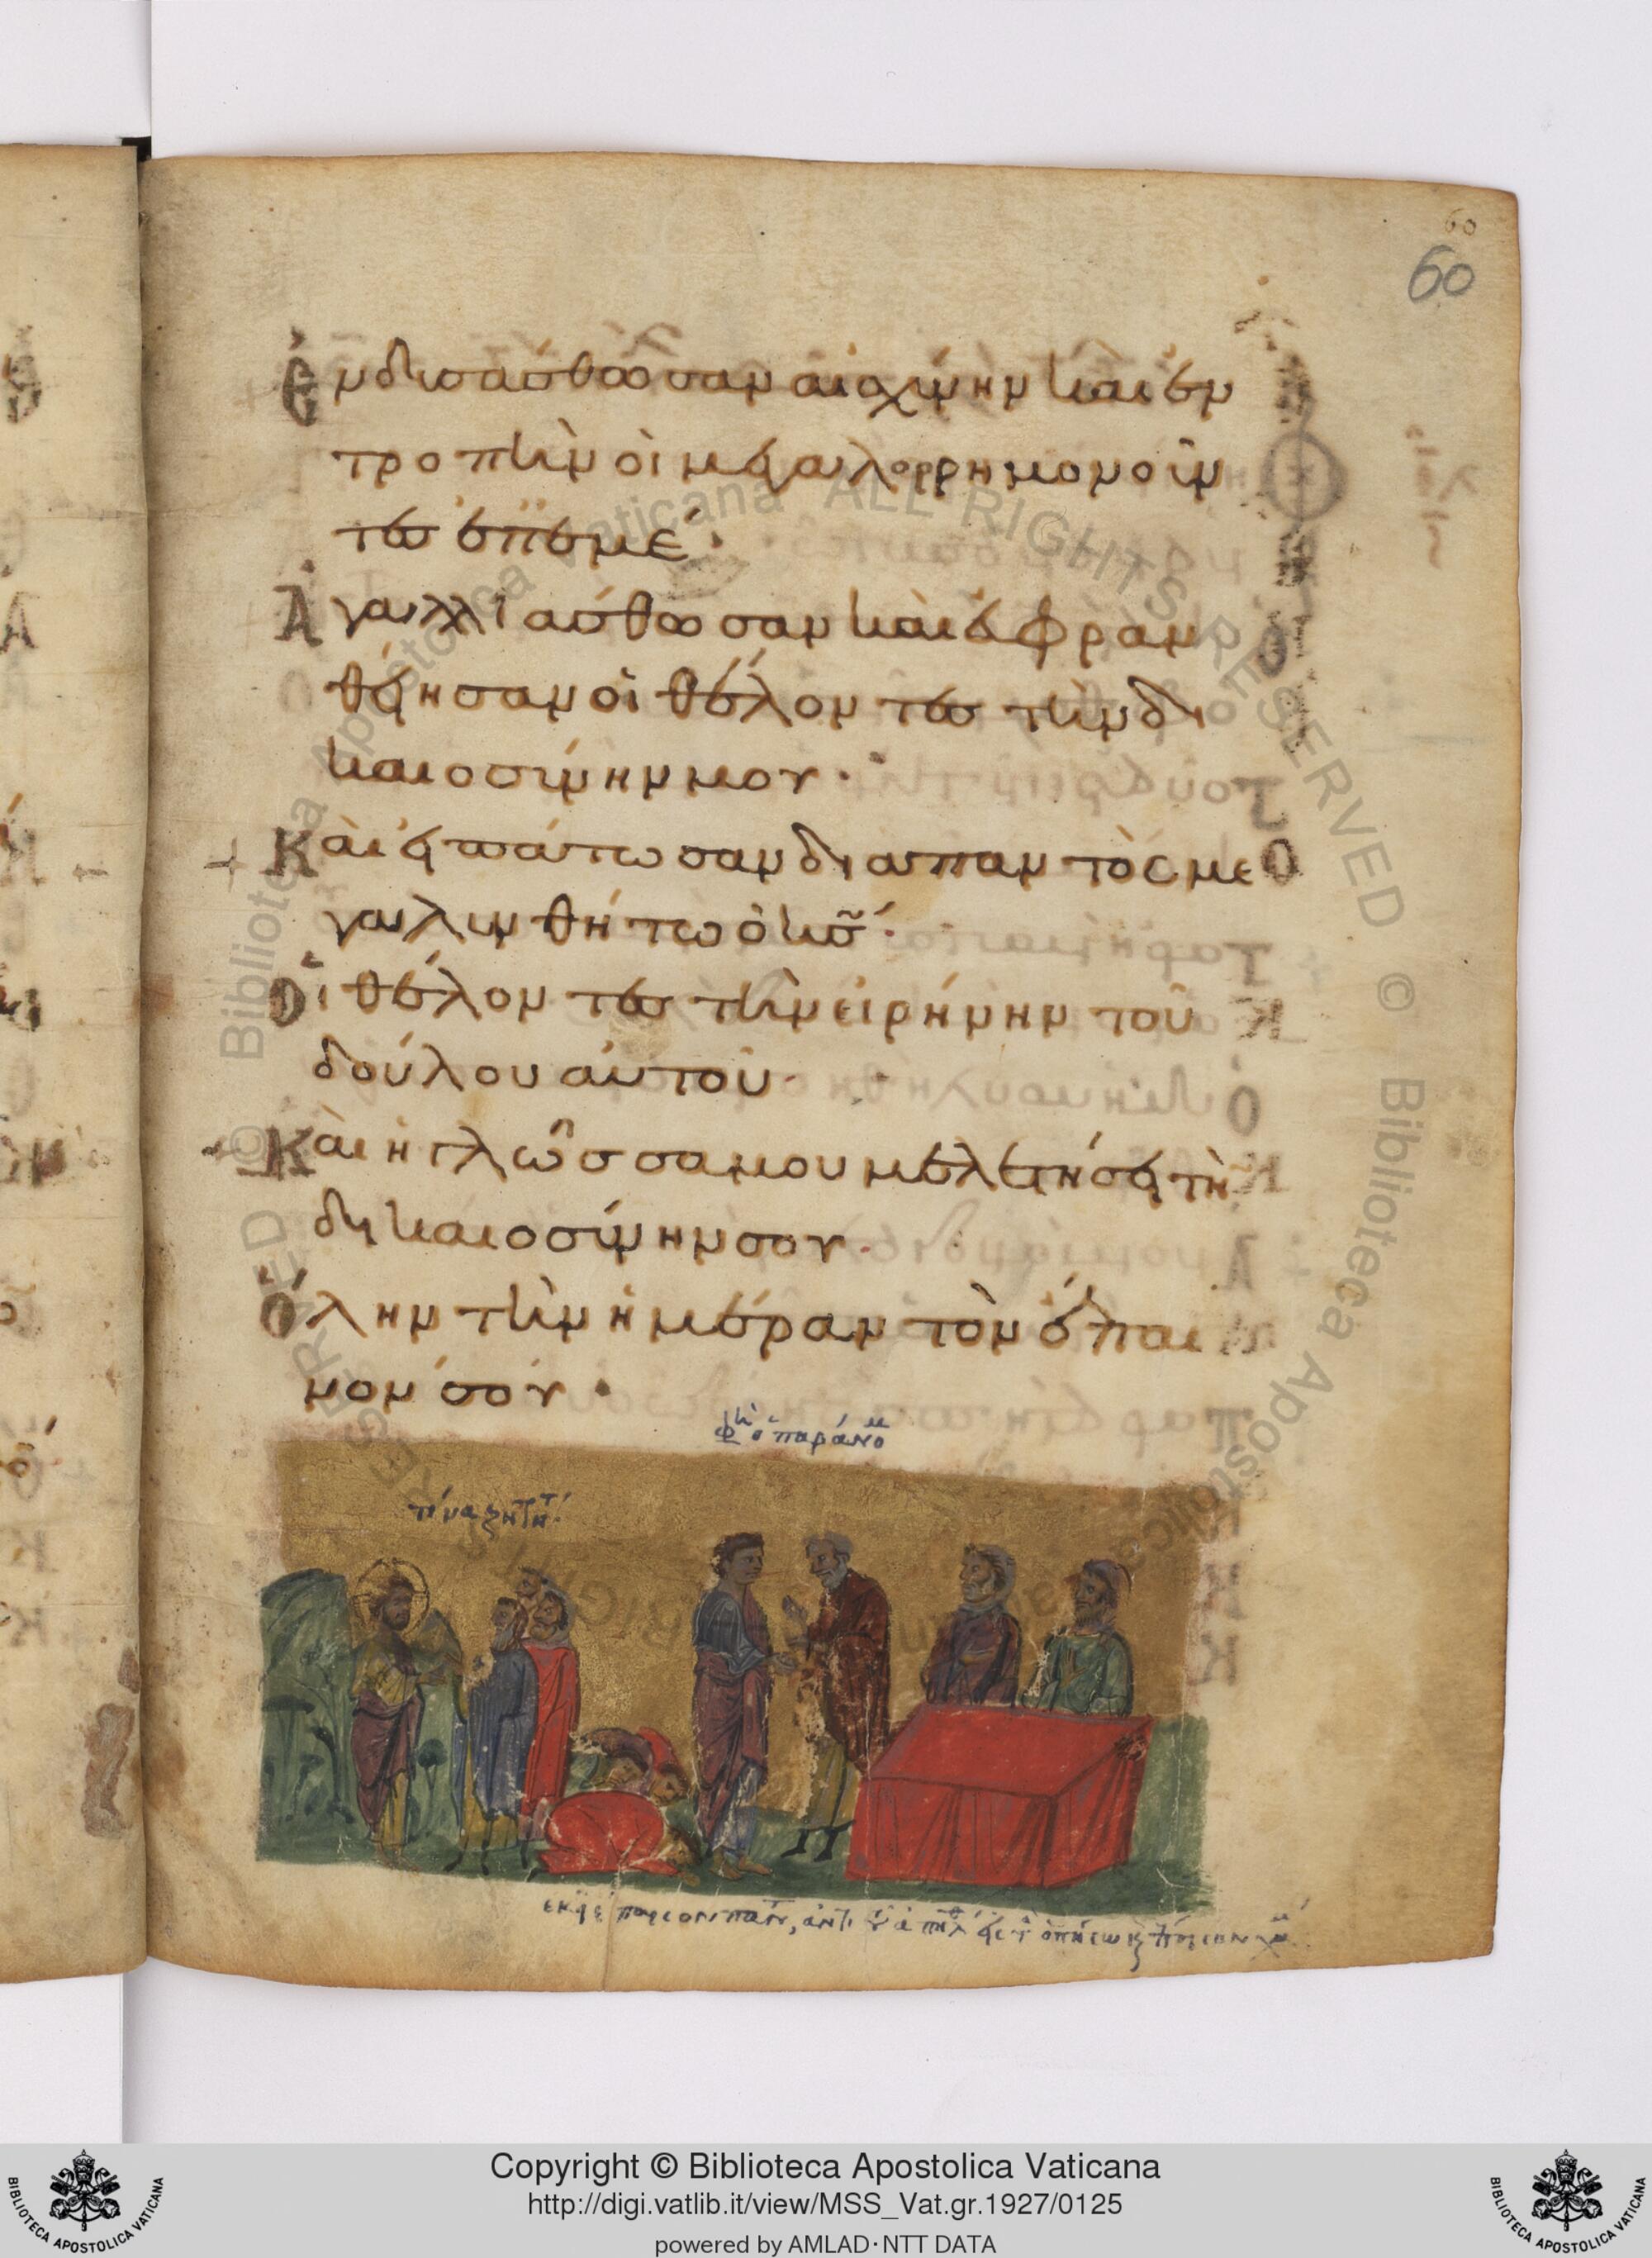 60
60
Ἐνδυσάσθωσαν αἰσχύνην καὶ ἐν
τροπὴν οἱ μεγαλορρημονοῦν
τες ἐπ' ἐμέ·
Ἀγαλλιάσθωσαν καὶ εὐφραν
θείησαν οἱ θέλοντες τὴν δι
καιοσύνην μου·
Καὶ εἰπάτωσαν διαπαντὸς με
γαλυνθήτω ὁ κς·
Οἱ θέλοντες τὴν εἰρήνην τοῦ
δούλου αὐτοῦ·
Καὶ ἡ γλῶσσα μου μελετήσει τὴ
δικαιοσύνην σου·
Ὅλην τὴν ἡμέραν τὸν ἔπαι
νον σου·
ὁ παράνο
τίνα ζητητ
Copyright © Biblioteca Apostolica Vaticana
http://digi.vatlib.it/view/MSS_Vat.gr.1927/0125
powered by AMLAD·NTT DATA
BIBLIOTECA APOSTOLICA VATICANA
BIBLIOTECA APOSTOLICA VATICANA